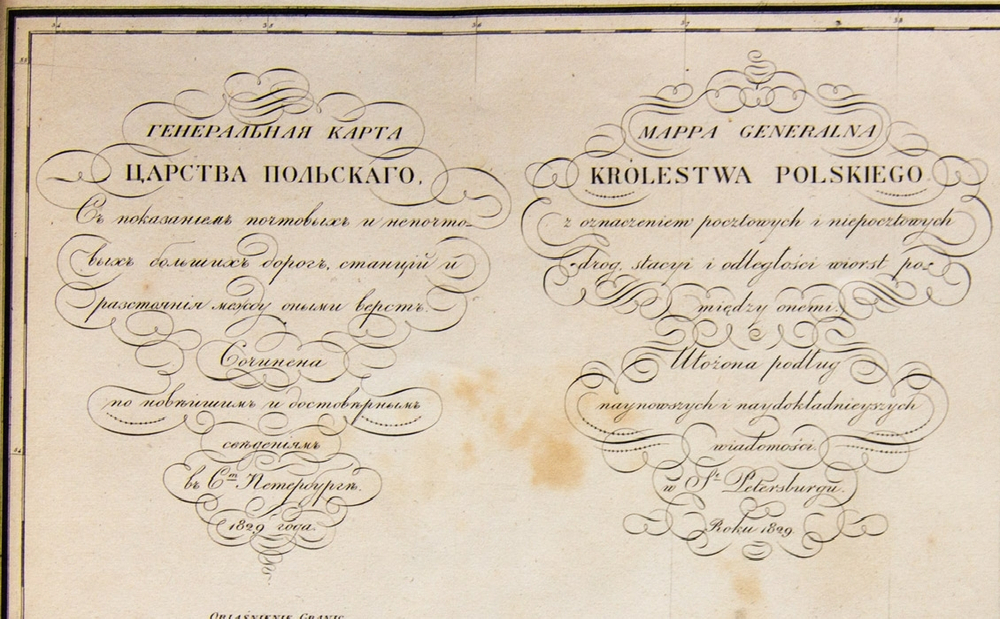 ГЕНЕРАЛЬНАЯ КАРТА
ЦАРСТВА ПОЛЬСКАГО,
Съ показаніемъ почтовыхъ и непочто-
выхъ большихъ дорогъ, станцій и
разстоянія между оными верстъ.
Сочинена
по новѣишимъ и достовѣрнымъ
свѣденіямъ
въ Ст Петербургѣ.
1829 года.
MAPPA GENERALNA
KRÓLESTWA POLSKIEGO
z oznaczeniem pocztowych i niepocztowych
dróg, stacyi i odległości wiorst po-
między onemi.
Ułożona podług
naynowszych i naydokładnieyszych
wiadomości
w St Petersburgu.
Roku 1829
OBIAŚNIENIE GRANIC